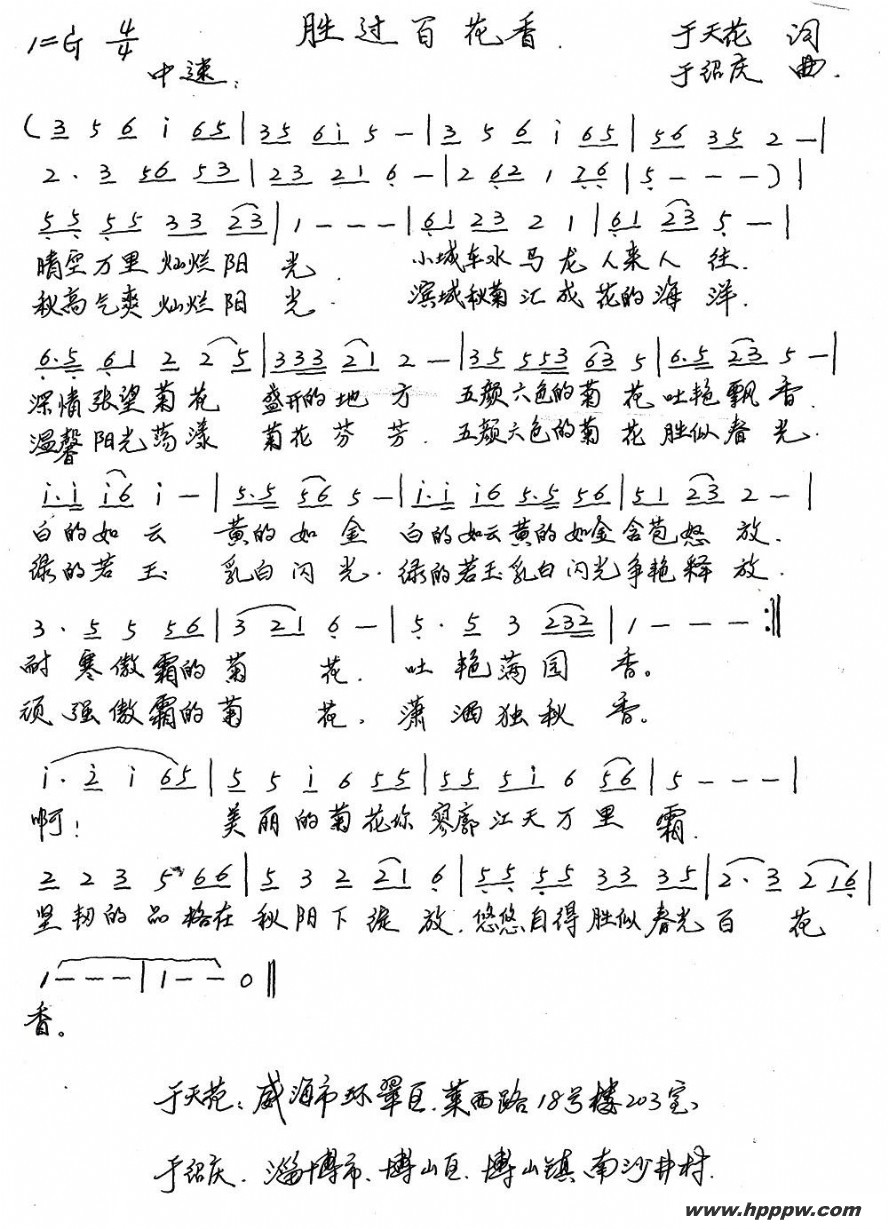 1=G 4/4 胜过百花香. 于天花 词
中速: 于绍庆 曲.
(3 5 6 i 65|35 6i 5 —|3 5 6 i 65|56 35 2 —|
2. 3 56 53|23 21 6 —|2 62 1 76|5 — — —)|
55 55 33 23|1 — — —|61 23 2 1|61 23 5 —|
晴空万里灿烂阳 光. 小城车水马龙人来人 往.
秋高气爽灿烂阳 光. 滨城秋菊汇成花的海 洋.
6.5 61 2 2 5|333 21 2 —|35 553 63 5|6.5 23 5 —|
深情张望菊花 盛开的地 方 五颜六色的菊 花吐艳飘 香.
温馨阳光荡漾 菊花芬 芳. 五颜六色的菊 花胜似春 光.
i.i i6 i —|5.5 56 5 —|i.i i6 5.5 56|51 23 2 —|
白的如 云 黄的如 金 白的如云黄的如金含苞怒 放.
绿的若 玉 乳白闪 光. 绿的若玉乳白闪光争艳释 放.
3. 5 5 56|3 21 6 —|5. 5 3 232|1 — — — :‖
耐 寒傲霜的菊 花. 吐 艳满园 香。
顽 强傲霜的菊 花. 潇 洒独秋 香。
i. 2 i 65|5 5 i 6 55|55 5i 6 56|5 — — —|
啊! 美丽的菊花你寥廓江天万里 霜.
2 2 3 5 66|5 3 2 21 6|55 55 33 35|2. 3 2 16|
坚韧的品格在秋阳下绽 放. 悠悠自得胜似春光百 花
1 — — —|1 — — 0‖
香。
于天花: 威海市环翠区.莱西路18号楼203室
于绍庆. 淄博市.博山区.博山镇.南沙井村.
www.hpppw.com